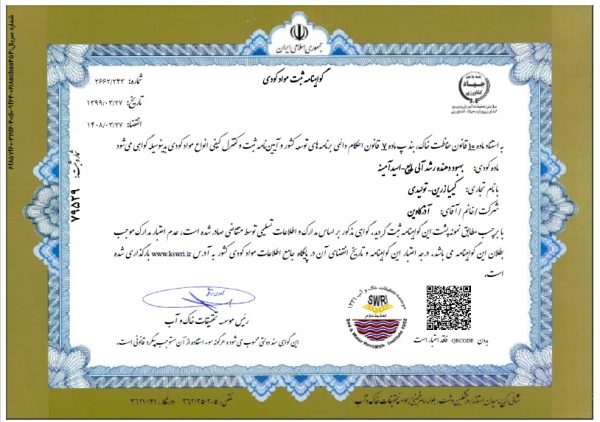 جمهوری اسلامی ایران
گواهینامه ثبت مواد کودی
شماره: ۲۶۶۲/۲۴۳
تاریخ: ۱۳۹۹/۰۳/۲۷
انقضاء: ۱۴۰۸/۰۳/۲۷
جهاد
کشاورزی
به استناد ماده ۱۰ قانون حفاظت خاک، بند پ ماده ۷ قانون احکام دائمی برنامه‌های توسعه کشور و آیین‌نامه ثبت و کنترل کیفی انواع مواد کودی بدینوسیله گواهی می‌شود
ماده کودی: بهبود دهنده رشد آلی مایع-اسید آمینه
با نام تجاری: کیمیا زرین-تولیدی
شرکت/خانم/آقای: آذرکاوین
با برچسب مطابق نمونه پشت این گواهینامه ثبت گردید، گواهی مذکور بر اساس مدارک و اطلاعات تسلیمی توسط متقاضی صادر شده است، عدم اعتبار مدارک موجب
بطلان این گواهینامه می باشد، درجه اعتبار این گواهینامه و تاریخ انقضای آن در پایگاه جامع اطلاعات مواد کودی کشور به آدرس www.kswri.ir بارگذاری شده
است.
شماره ثبت: ۷۹۵۲۹
موسسه تحقیقات خاک و آب ۱۳۴۱
SWRI
Soil & Water Research Institute 1962
رئیس موسسه تحقیقات خاک و آب
بدون QRCODE فاقد اعتبار است
این گواهی سند دولتی محسوب می شود و هرگونه سوء استفاده از آن مستوجب پیگرد قانونی است.